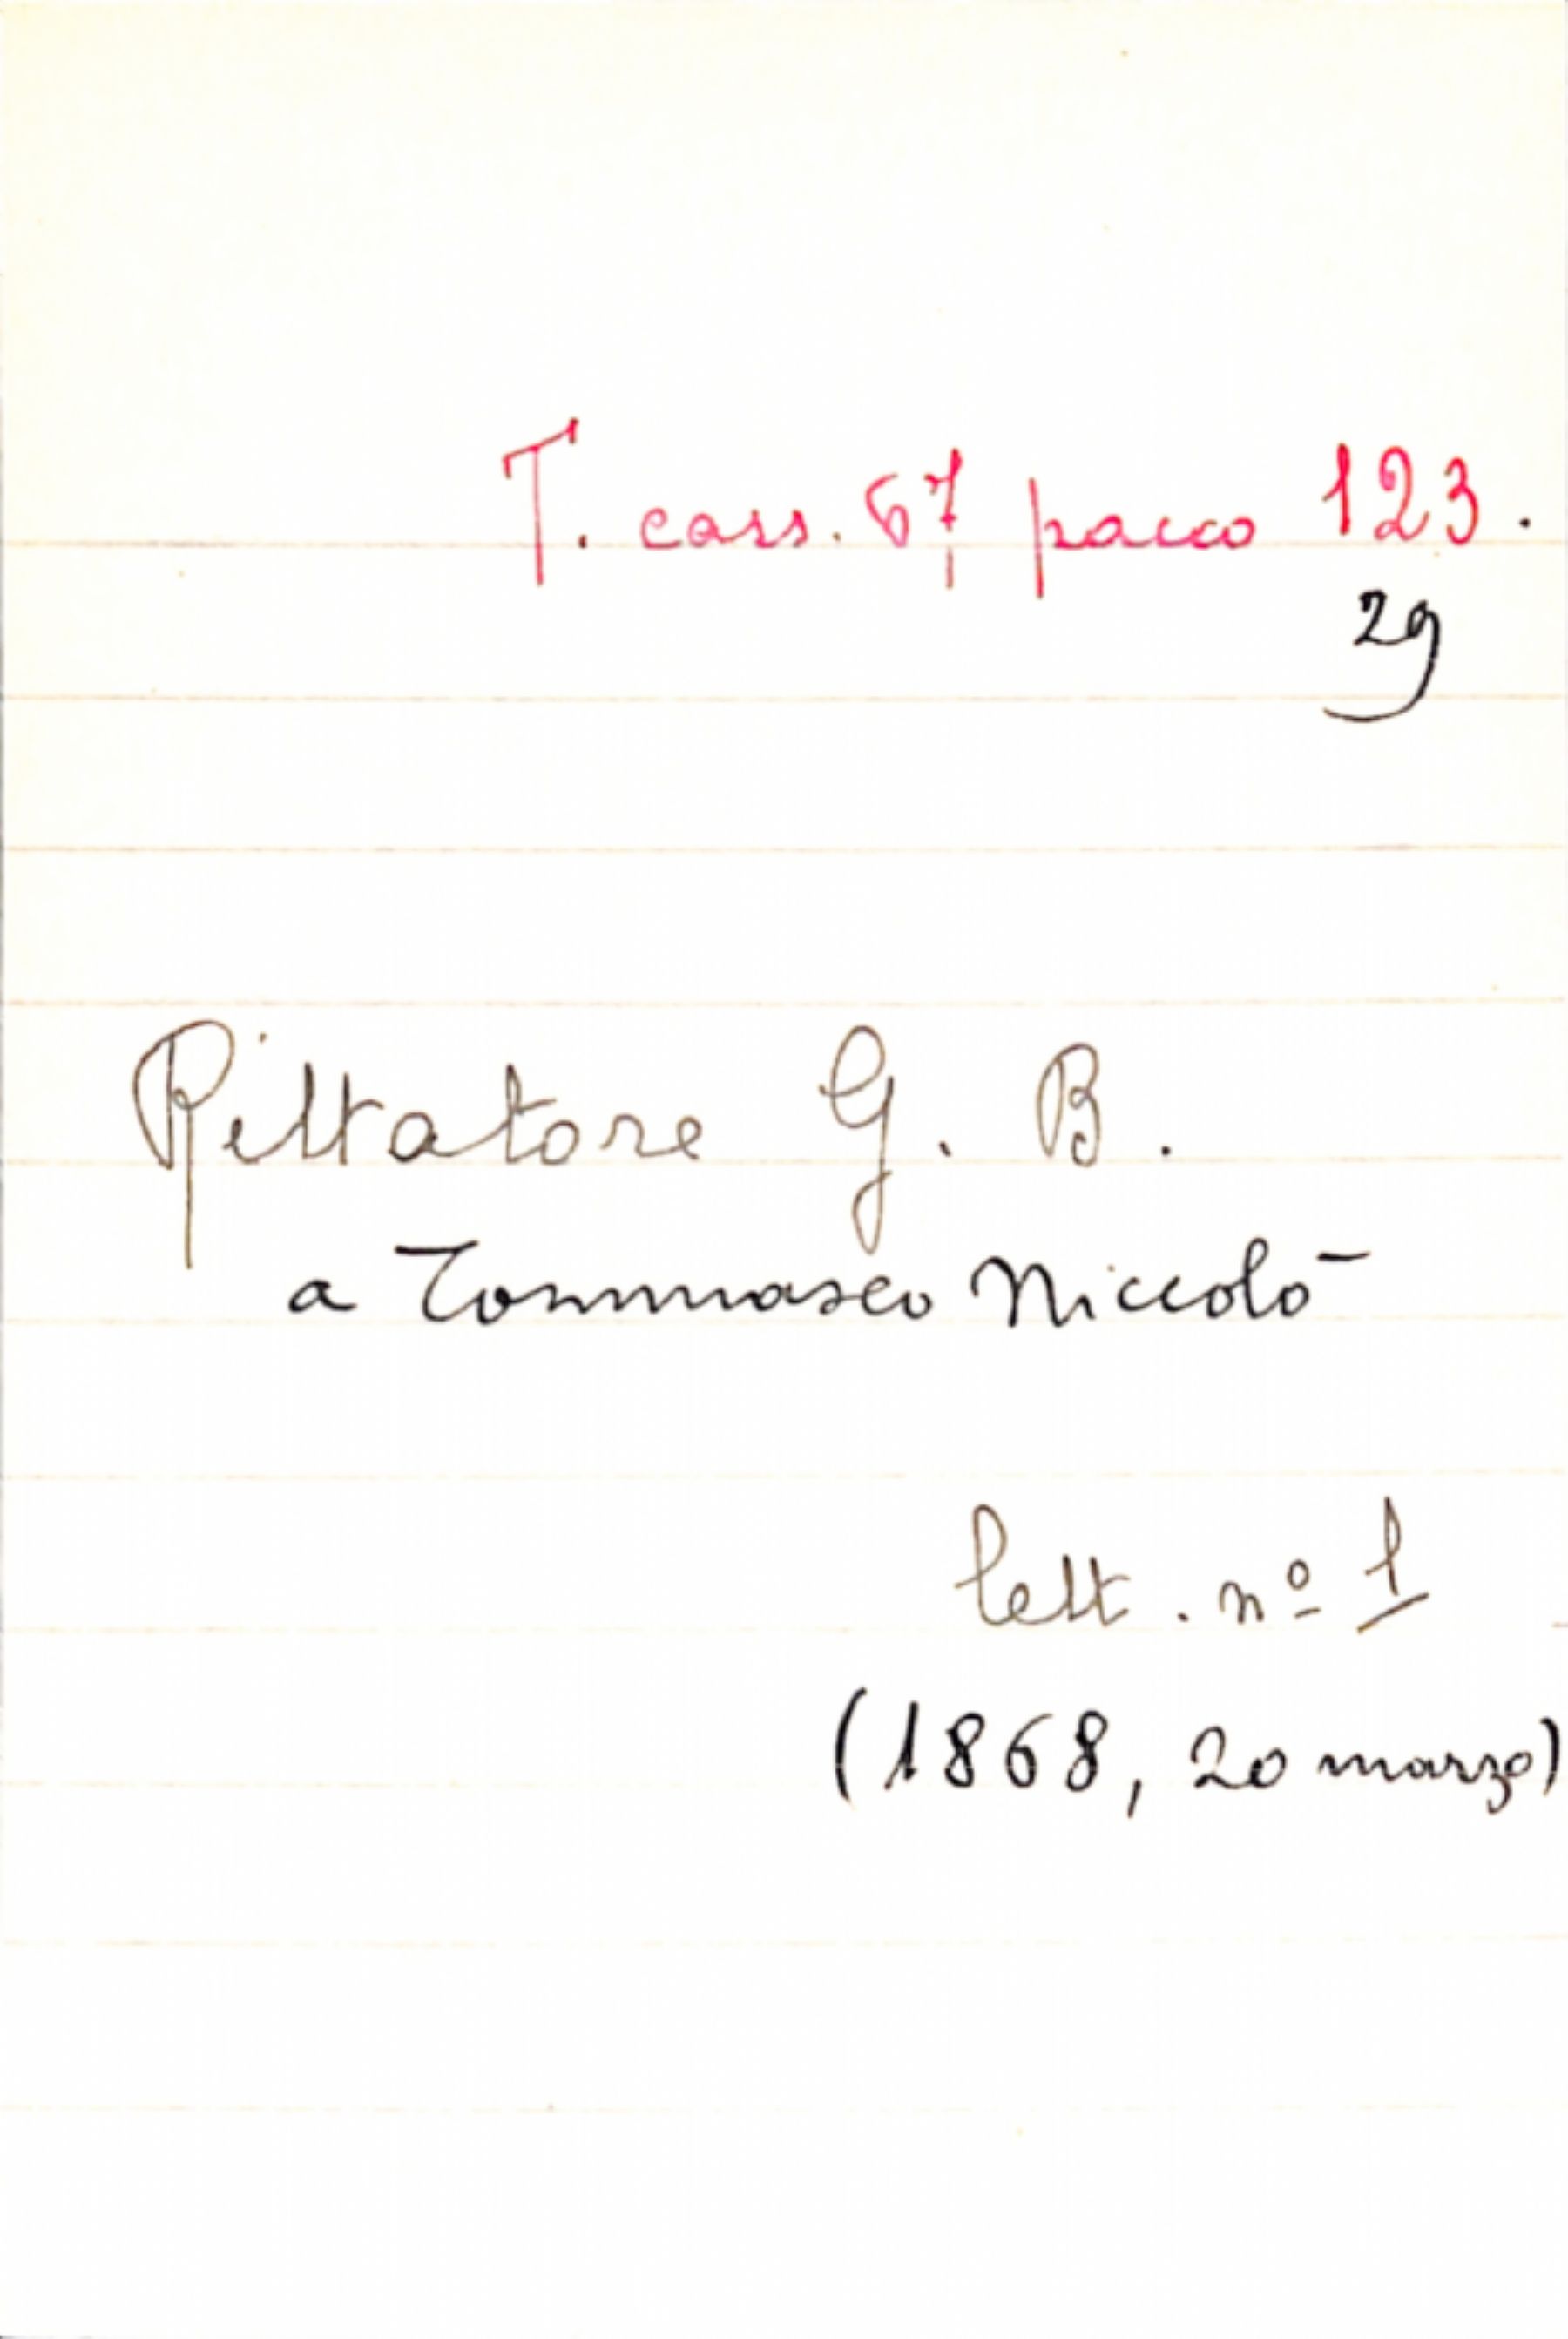 T. cass. 67 pacco 123.
29
Pittatore G. B.
a Tommaseo Niccolò
lett. nº 1
(1868, 20 marzo)